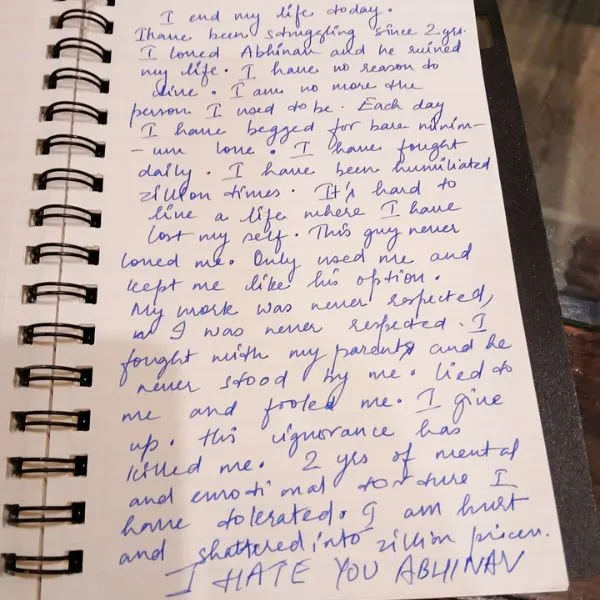 I end my life today.
I have been struggling since 2 yrs.
I loved Abhinav and he ruined
my life. I have no reason to
live. I am no more the
person I used to be. Each day
I have begged for bare minim-
-um love. I have fought
daily. I have been humiliated
zillion times. It's hard to
live a life where I have
lost my self. This guy never
loved me. Only used me and
kept me like his option.
My work was never respected,
I was never respected. I
fought with my parents and he
never stood by me. Lied to
me and fooled me. I give
up. this ignorance has
killed me. 2 yrs of mental
and emotional torture I
have tolerated. I am hurt
and shattered into zillion pieces.
I HATE YOU ABHINAV